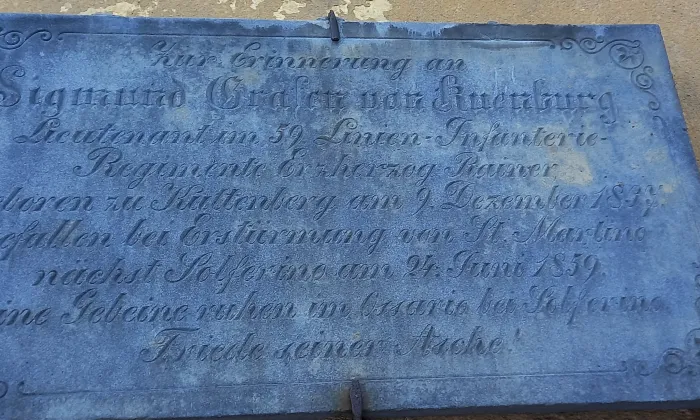 Zur Erinnerung an
Sigmund Grafen von Kuenburg
Lieutenant im 59. Linien-Infanterie-
Regimente Erzherzog Rainer
eboren zu Kaltenberg am 9. Dezember
efallen bei Erstürmung von St. Martino
nächst Solferino am 24. Juni 1859.
ine Gebeine ruhen im Ossario bei Solferino.
Friede seiner Asche!